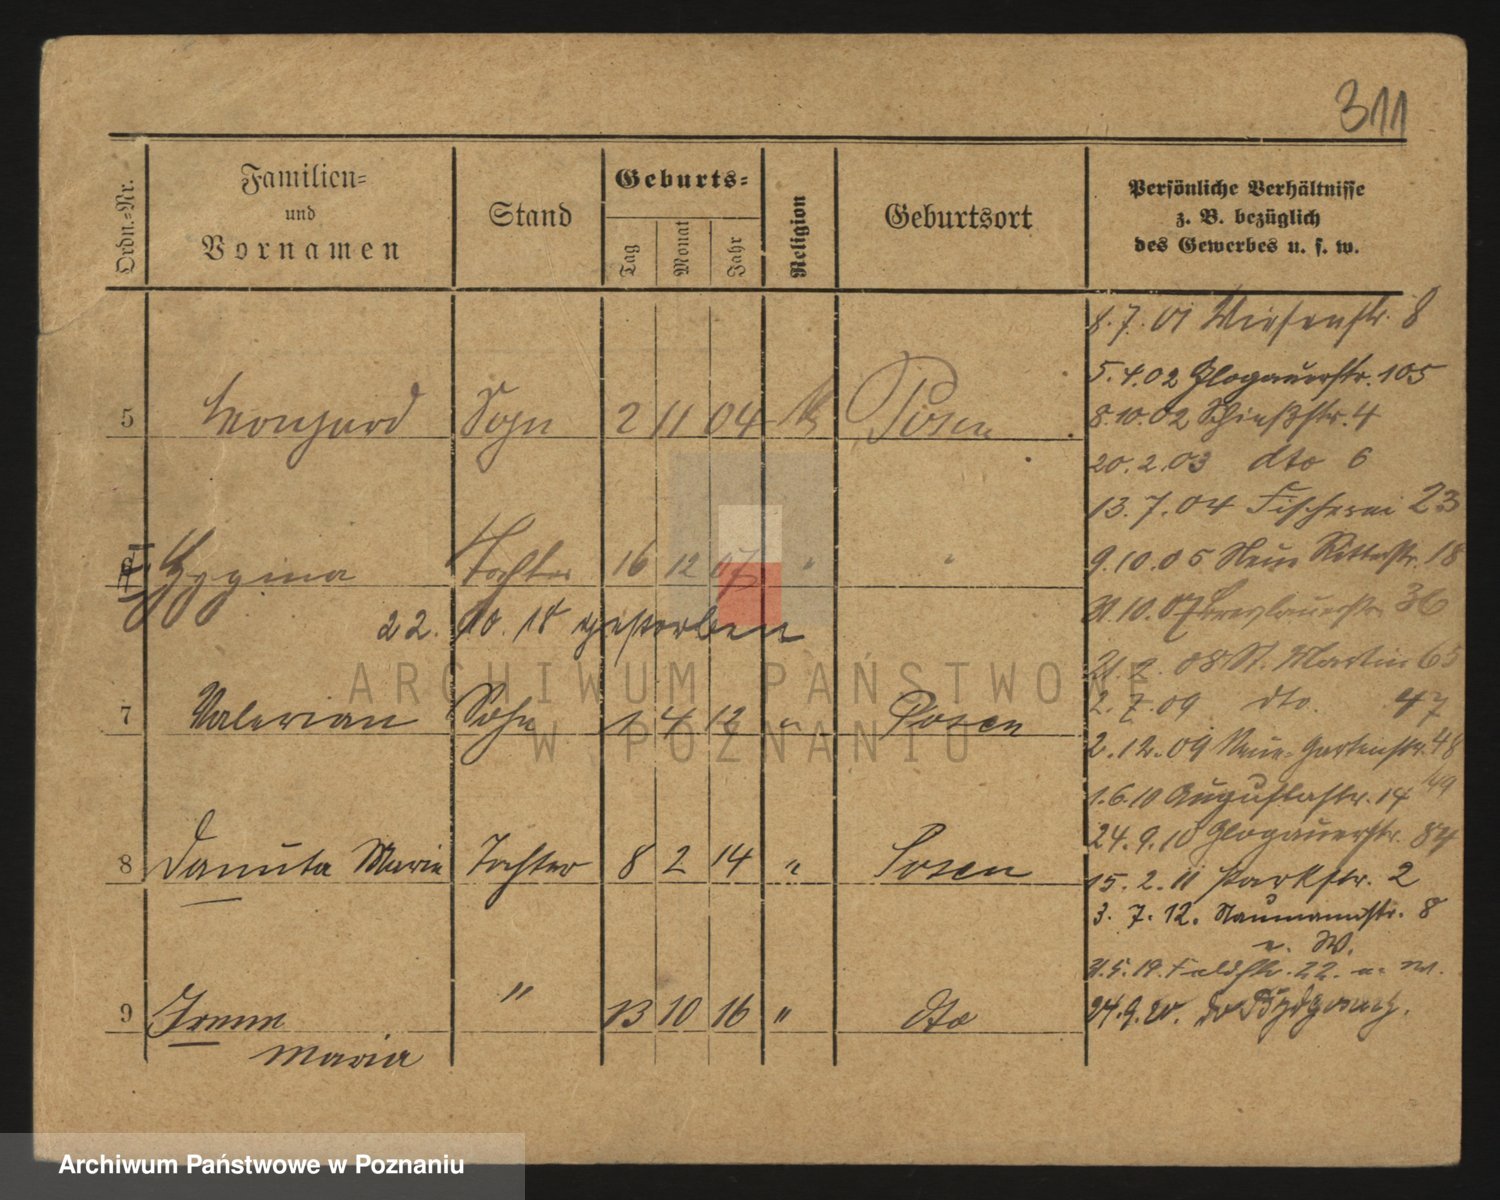 311
Ordn.=Nr.
Familien=
und
Vornamen
Stand
Geburts=
Tag
Monat
Jahr
Religion
Geburtsort
Persönliche Verhältnisse
z. B. bezüglich
des Gewerbes u. s. w.
5 Leonhard Sohn 2 11 04 k Posen
6 Hygina Tochter 16 12 07 " "
22. 10. 18 gestorben
7 Valerian Sohn 1 4 12 " Posen
8 Danuta Marie Tochter 8 2 14 " Posen
9 Irene " 13 10 16 " dto
Maria
8.7.01 Wiesenstr. 8
5.4.02 Glogauerstr. 105
8.10.02 Schießstr. 4
20.2.03 dto 6
13.7.04 Fischerei 23
9.10.05 Neue Ritterstr. 18
31.10.07 Breslauerstr. 36
St. Martin 65
2.7.09 dto. 47
2.12.09 Neue Gartenstr. 48
49
1.6.10 Augustastr. 14
24.9.10 Glogauerstr. 84
15.2.11 Parkstr. 2
3.7.12. Naumannstr. 8
n. W.
31.5.19. Feldstr. 22. n. W.
24.9.20. Bydgoszcz.
ARCHIWUM PAŃSTWOWE
W POZNANIU
Archiwum Państwowe w Poznaniu